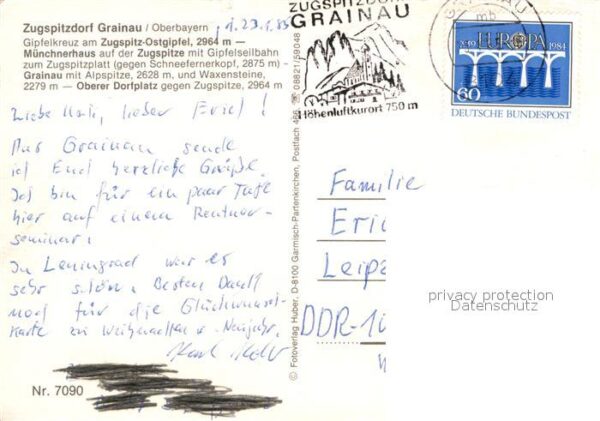 Zugspitzdorf Grainau / Oberbayern
Gipfelkreuz am Zugspitz-Ostgipfel, 2964 m —
Münchnerhaus auf der Zugspitze mit Gipfelseilbahn
zum Zugspitzplatt (gegen Schneefernerkopf, 2875 m) -
Grainau mit Alpspitze, 2628 m, und Waxensteine,
2279 m — Oberer Dorfplatz gegen Zugspitze, 2964 m
23.1.85
Liebe lieber Erich!
Aus Grainau sende
ich Euch herzliche Grüße.
Ich bin für ein paar Tage
hier auf einem Rentner-
seminar.
In Leningrad war es
sehr schön. Besten Dank
noch für die Glückwunsch-
karte zu Weihnachten u. Neujahr.
Karl
Nr. 7090
© Fotoverlag Huber, D-8100 Garmisch-Partenkirchen, Postfach 486, ☎ 08821/59048
ZUGSPITZDORF
GRAINAU
Höhenluftkurort 750 m
GRAINAU
mb
X-19 EUROPA 1984
60
DEUTSCHE BUNDESPOST
Familie
Eric
Leipz
DDR-10
privacy protection
Datenschutz